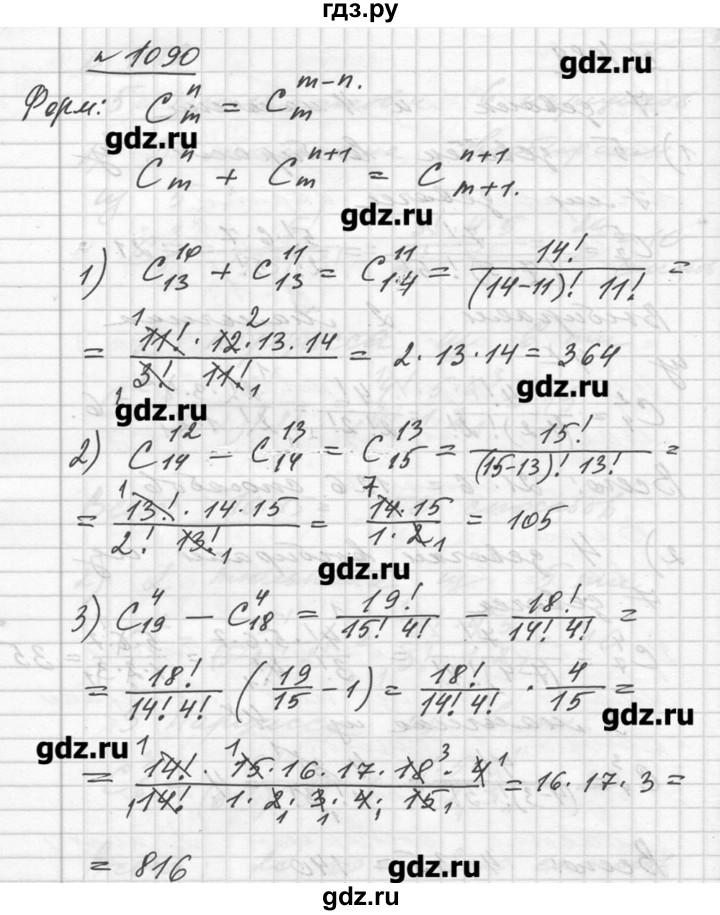 гдз.ру
№ 1090
gdz.ru
Форм: C_m^n = C_m^{m-n}.
gdz.ru
C_m^n + C_m^{n+1} = C_{m+1}^{n+1}.
gdz.ru
1) C_{13}^{10} + C_{13}^{11} = C_{14}^{11} = 14! / ((14-11)! 11!) =
= (11! · 12 · 13 · 14) / (3! 11!) = 2 · 13 · 14 = 364
gdz.ru
gdz.ru
2) C_{14}^{12} − C_{14}^{13} = C_{15}^{13} = 15! / ((15-13)! 13!) =
= (13! · 14 · 15) / (2! 13!) = (14 · 15) / (1 · 2) = 105
gdz.ru
3) C_{19}^4 − C_{18}^4 = 19! / (15! 4!) − 18! / (14! 4!) =
= 18! / (14! 4!) (19/15 − 1) = 18! / (14! 4!) · 4/15 =
gdz.ru
gdz.ru
= (14! · 15 · 16 · 17 · 18 · 4) / (14! 1 · 2 · 3 · 4 · 15) = 16 · 17 · 3 =
= 816
gdz.ru
gdz.ru